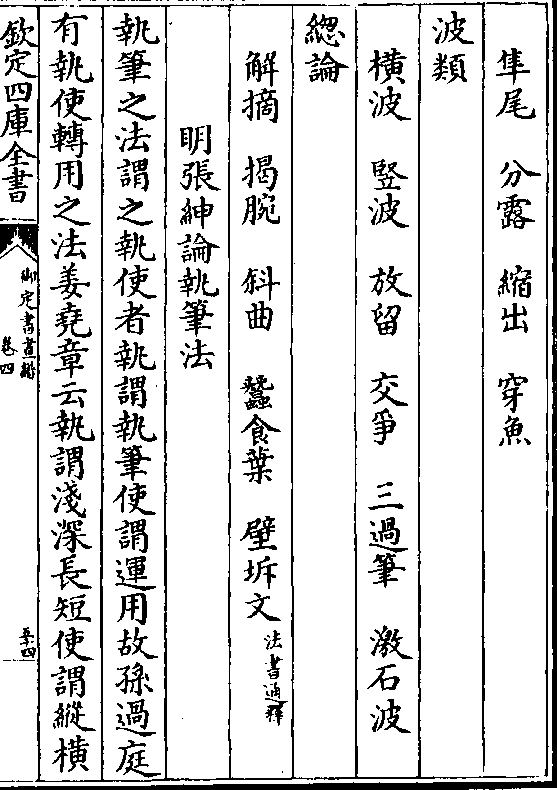 隼尾　分露　縮出　穿魚
波類
橫波　竪波　放留　交爭　三過筆　激石波
總論
解摘　揭腕　斜曲　蠶食葉　壁坼文法書通釋
明張紳論執筆法
執筆之法謂之執使者執謂執筆使謂運用故孫過庭
有執使轉用之法姜堯章云執謂淺深長短使謂縱橫
欽定四庫全書
御定書畫譜
卷四
至四